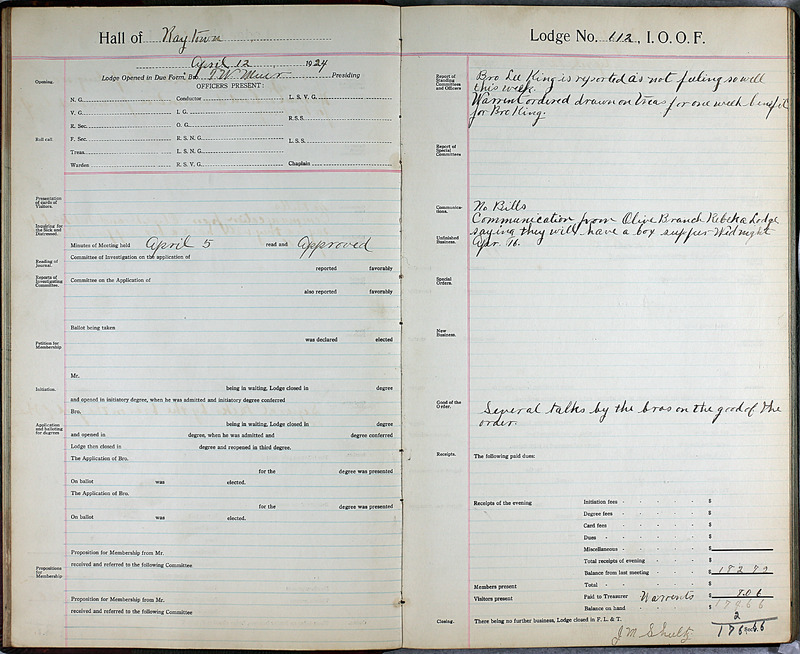 Hall of Raytown
April 12 1924
Lodge Opened in Due Form, Bro. J W Muir Presiding
Opening.
OFFICERS PRESENT:
N. G. Conductor L. S. V. G.
V. G. I. G.
R. S. S.
R. Sec. O. G.
Roll call.
F. Sec. R. S. N. G.
L. S. S.
Treas. L. S. N. G.
Warden R. S. V. G. Chaplain
Presentation of cards of Visitors.
Inquiring for the Sick and Distressed.
Minutes of Meeting held April 5 read and Approved
Reading of Journal.
Committee of Investigation on the application of
reported favorably
Reports of Investigating Committee.
Committee on the Application of
also reported favorably
Ballot being taken
was declared elected
Petition for Membership
Mr.
being in waiting, Lodge closed in degree
Initiation.
and opened in initiatory degree, when he was admitted and initiatory degree conferred
Bro.
being in waiting, Lodge closed in degree
Application and balloting for degrees
and opened in degree, when he was admitted and degree conferred
Lodge then closed in degree and reopened in third degree.
The Application of Bro.
for the degree was presented
On ballot was elected.
The Application of Bro.
for the degree was presented
On ballot was elected.
Proposition for Membership from Mr.
received and referred to the following Committee
Propositions for Membership
Proposition for Membership from Mr.
received and referred to the following Committee
Lodge No. 112, I. O. O. F.
Report of Standing Committees and Officers
Bro Lee King is reported as not feeling so well
this week.
Warrent ordered drawn on treas for one week benefit
for Bro King.
Report of Special Committees
Communications.
No Bills
Communication from Olive Branch Rebeka Lodge
saying they will have a box supper Wed night
Apr. 16.
Unfinished Business.
Special Orders.
New Business.
Good of the Order.
Several talks by the bros on the good of the
order.
Receipts.
The following paid dues:
Receipts of the evening Initiation fees $
Degree fees $
Card fees $
Dues $
Miscellaneous $
Total receipts of evening $
Balance from last meeting $
Members present Total $
Visitors present Paid to Treasurer Warrents $
Balance on hand $
Closing.
There being no further business, Lodge closed in F. L. & T.
J M Shultz Sec.